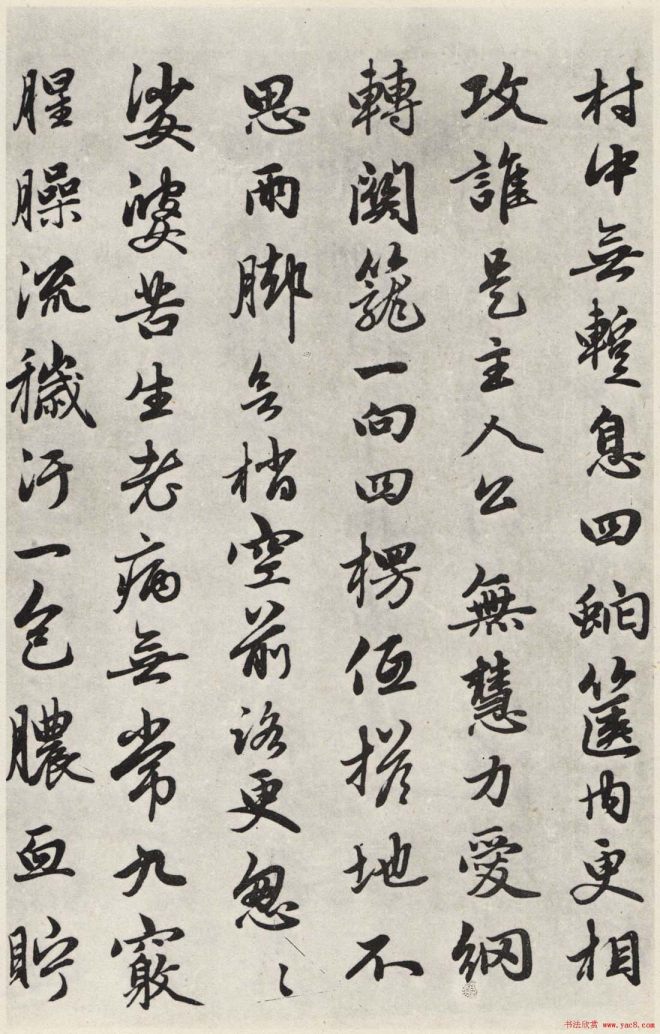 村中無蹔息四虵篋内更相
攻誰是主人公無慧力愛網
轉關籠一向四楞低搭地不
思兩脚無梢空前路更忽〻
娑婆苦生老病無常九竅
腥臊流穢汙一包膿血貯
书法欣赏 www.yac8.com